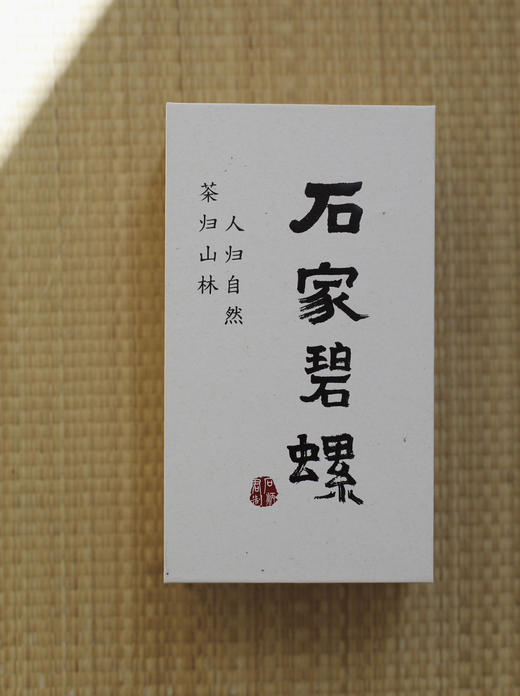 石家碧螺
人归自然
茶归山林